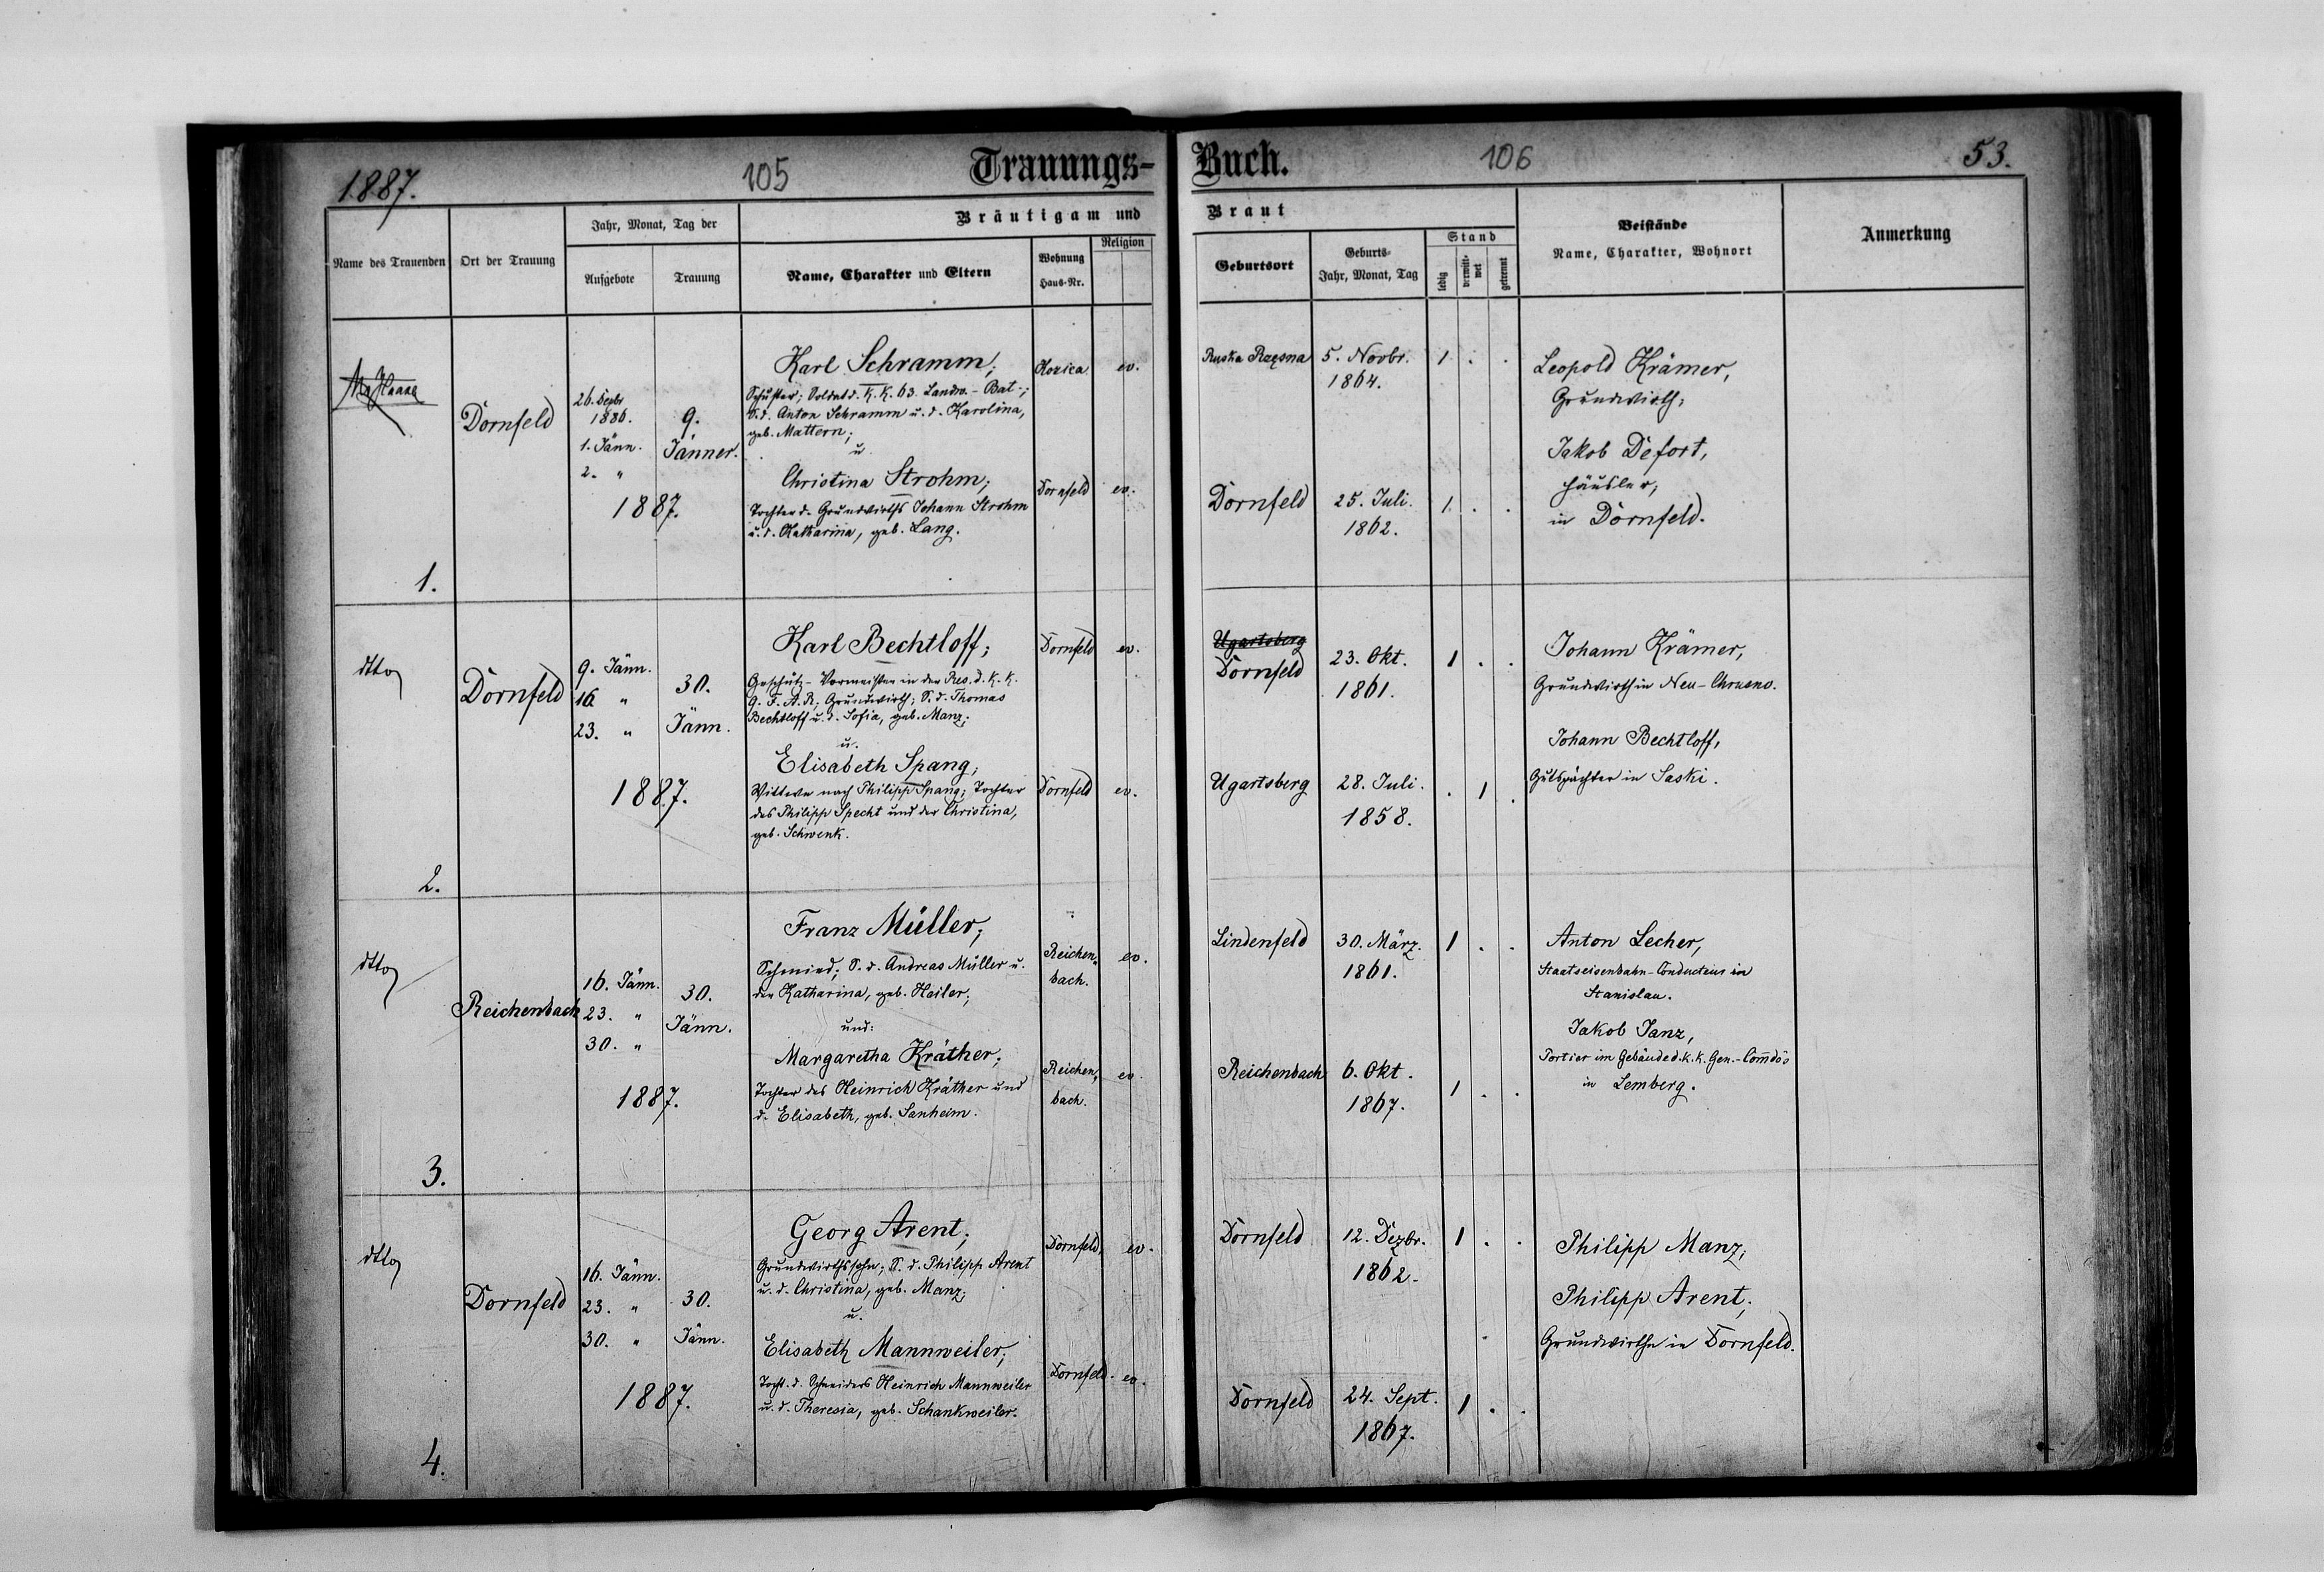 1887.
105
Trauungs-
Buch.
106
53.
Name des Trauenden
Ort der Trauung
Jahr, Monat, Tag der
Aufgebote
Trauung
Bräutigam und
Braut
Name, Charakter und Eltern
Wohnung
Haus-Nr.
Religion
Geburtsort
Geburts-
Jahr, Monat, Tag
Stand
ledig
verwitt-
wet
getrennt
Beistände
Name, Charakter, Wohnort
Anmerkung
Haase
Dornfeld
26. Dezbr
1886.
1. Jänn.
2. "
9.
Jänner.
1887.
Karl Schramm;
Schuster; Soldat d. K. K. 63. Landw.- Bat.-;
S. d. Anton Schramm u. d. Karolina,
geb. Mattern;
u.
Christina Strohm;
Tochter d. Grundwirths Johann Strohm
u. d. Katharina, geb. Lang.
Horica
ev.
Dornfeld
ev.
Ruska Rzęsna
5. Novbr.
1864.
1 . .
Dornfeld
25. Juli.
1862.
1 . .
Leopold Krämer,
Grundwirth;
Jakob Defort,
Häusler;
in Dornfeld.
1.
dtto
Dornfeld
9. Jänn.
16 "
23. "
30.
Jänn.
1887.
Karl Bechtloff;
Geschütz-Vormeister in der Res. d. K. K.
9. F. A. R.; Grundwirth; S. d. Thomas
Bechtloff u. d. Sofia, geb. Manz;
u.
Elisabeth Spang;
Wittwe nach Philipp Spang; Tochter
des Philipp Specht und der Christina,
geb. Schwenk.
Dornfeld
ev.
Dornfeld
ev.
Ugartsberg
Dornfeld
23. Okt.
1861.
1 . .
Ugartsberg
28. Juli.
1858.
. 1 .
Johann Krämer,
Grundwirth in Neu-Chrusno.
Johann Bechtloff,
Gutspächter in Saski.
2.
dtto
Reichenbach
16. Jänn.
23. "
30. "
30.
Jänn.
1887.
Franz Müller;
Schmied; S. d. Andreas Müller u.
der Katharina, geb. Heiler;
und:
Margaretha Kräther;
Tochter des Heinrich Kräther und
d. Elisabeth, geb. Sanheim.
Reichen-
bach.
ev.
Reichen-
bach.
ev.
Lindenfeld
30. März.
1861.
1 . .
Reichenbach
6. Okt.
1867.
1 . .
Anton Lecher,
Staatseisenbahn-Conducteur in
Stanislau.
Jakob Janz,
Portier im Gebäude d. k. k. Gen.-Comdo's
in Lemberg.
3.
dtto
Dornfeld
16. Jänn.
23. "
30. "
30.
Jänn.
1887.
Georg Arent;
Grundwirthssohn; S. d. Philipp Arent
u. d. Christina, geb. Manz;
u.
Elisabeth Mannweiler;
Tocht. d. Schneiders Heinrich Mannweiler
u. d. Theresia, geb. Schankweiler.
Dornfeld.
ev.
Dornfeld.
ev.
Dornfeld
12. Dezbr.
1862.
1 . .
Dornfeld
24. Sept.
1867.
1 . .
Philipp Manz;
Philipp Arent;
Grundwirthe in Dornfeld.
4.